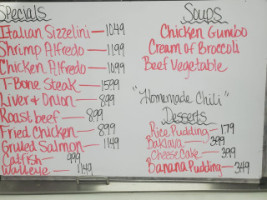 Specials
Italian Sizzelini — 1099
Shrimp Alfredo — 1199
Chicken Alfredo — 1099
T-Bone Steak — 1599
Liver & Onion — 899
Roast beef — 899
Fried Chicken — 899
Grilled Salmon — 1149
Catfish — 999
Walleye — 1149
Soups
Chicken Gumbo
Cream of Broccoli
Beef Vegetable
"Homemade Chili"
Desserts
Rice Pudding — 179
Baklava — 399
Cheese Cake — 399
Banana Pudding — 349